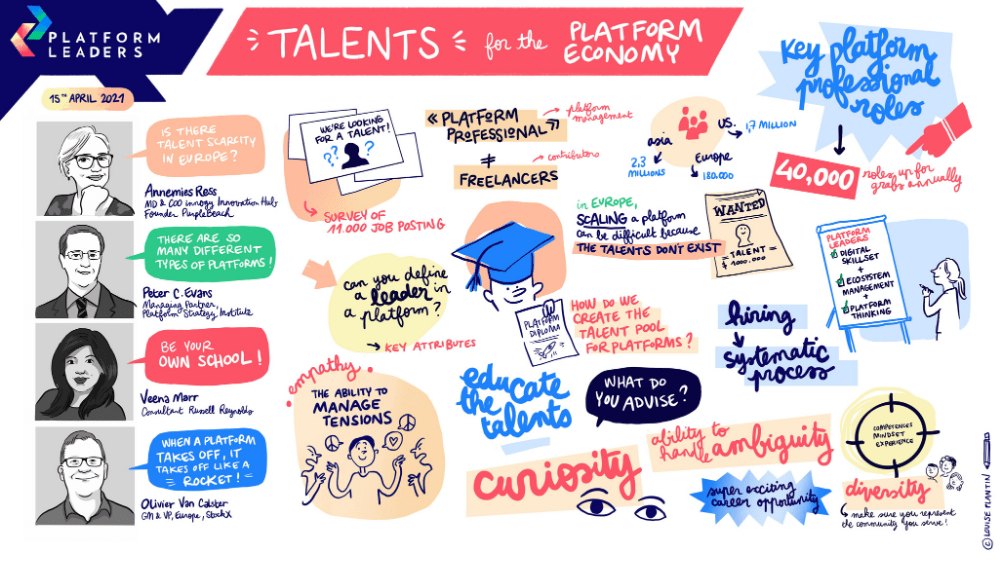 PLATFORM
LEADERS
TALENTS for the PLATFORM
ECONOMY
15TH APRIL 2021
IS THERE
TALENT SCARCITY
IN EUROPE?
Annemies Ross
MD & COO innogy Innovation Hub
Founder PurpleBeach
THERE ARE SO
MANY DIFFERENT
TYPES OF PLATFORMS!
Peter C. Evans
Managing Partner,
Platform Strategy Institute
BE YOUR
OWN SCHOOL!
Veena Marr
Consultant Russell Reynolds
WHEN A PLATFORM
TAKES OFF, IT
TAKES OFF LIKE A
ROCKET!
Olivier Van Calster
GM & VP, Europe, StockX
WE'RE LOOKING
FOR A TALENT!
?? ?
SURVEY OF
11.000 JOB POSTING
« PLATFORM
PROFESSIONAL »
platform
management
≠
FREELANCERS
contributors
asia
2.3
MILLIONS
US.
1,7 MILLION
Europe
180.000
Key platform
professional
roles
40,000
roles up for
grabs annually
can you define
a leader in
a platform?
KEY ATTRIBUTES
in EUROPE,
SCALING a platform
can be difficult because
THE TALENTS DON'T EXIST
WANTED
= TALENT =
$ 1000.000
PLATFORM
DIPLOMA
HOW DO WE
CREATE THE
TALENT POOL
FOR PLATFORMS?
PLATFORM
LEADERS
DIGITAL
SKILLSET
+
ECOSYSTEM
MANAGEMENT
+
PLATFORM
THINKING
hiring
systematic
process
empathy
THE ABILITY TO
MANAGE
TENSIONS
educate
the talents
WHAT DO
YOU ADVISE?
curiosity
ability to
handle ambiguity
super exciting
career opportunity
COMPETENCES
MINDSET
EXPERIENCE
diversity
make sure you represent
the community you serve!
© LOUISE PLANTIN